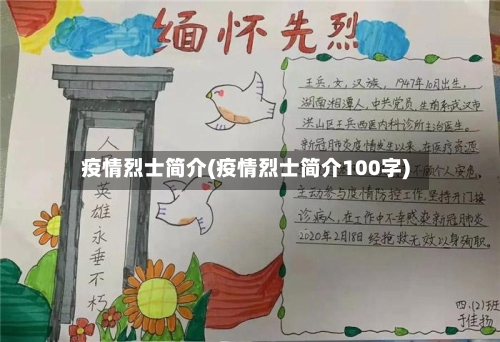 缅怀先烈
人
英雄永垂不朽
疫情烈士简介(疫情烈士简介100字)
王兵,女,汉族,1947年10月出生,
湖南湘潭人,中共党员,生前系武汉市
洪山区王兵西医内科诊所主治医生。
新冠肺炎疫情发生以来,在医疗资源
个人安危,
主动参与疫情防控工作,坚持开门接
诊病人,在工作中不幸感染新冠肺炎
2020年2月18日经抢救无效以身殉职。
四.(2)班
于佳扬